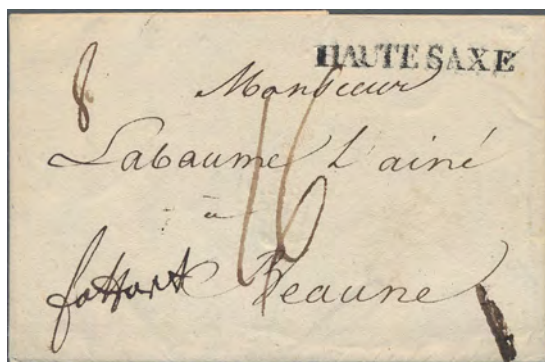 HAUTE SAXE
8
Monsieur
Labaume L'ainé
16
à
Beaune